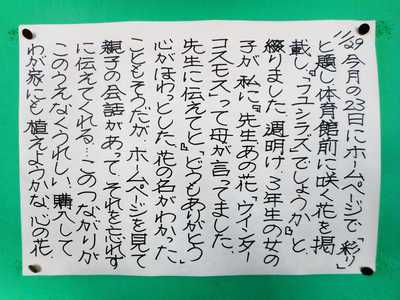 11/29 今月の23日にホームページで「彩り」
と題し体育館前に咲く花を掲
載し。『フユシラズ』でしょうか。と
綴りました。週明け、3年生の女の
子が私に『先生、あの花「ウインター
コスモス」って母が言ってました。
先生に伝えてと。』『どうもありがとう』
心がほわっとした。花の名がわかった
こともそうだが、ホームページを見て
親子の会話があって、それを忘れず
に伝えてくれる…このつながりが
このうえなくうれしい。購入して
わが家にも植えようかな、心の花。